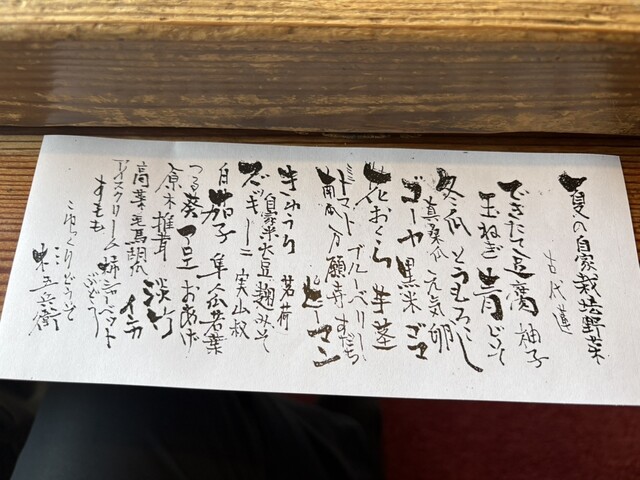 夏の自家栽培野菜
古代蓮
できたて豆腐 柚子
玉ねぎ 青じそ
冬瓜 とうもろこし
真桑瓜 元気卵
ゴーヤ 黒米 ゴマ
花おくら 芋茎
ミニトマト ブルーベリー
南瓜 万願寺 すだち
ピーマン
きゅうり 茗荷
自家米大豆麹みそ
ズッキーニ 実山椒
白茄子 隼人瓜若葉
つる葵 豆 おあげ
原木椎茸 淡竹
高菜 馬胡瓜 イカ
アイスクリーム 柿シャーベット
すもも ぶどう
ごゆっくりどうぞ
米五兵衛